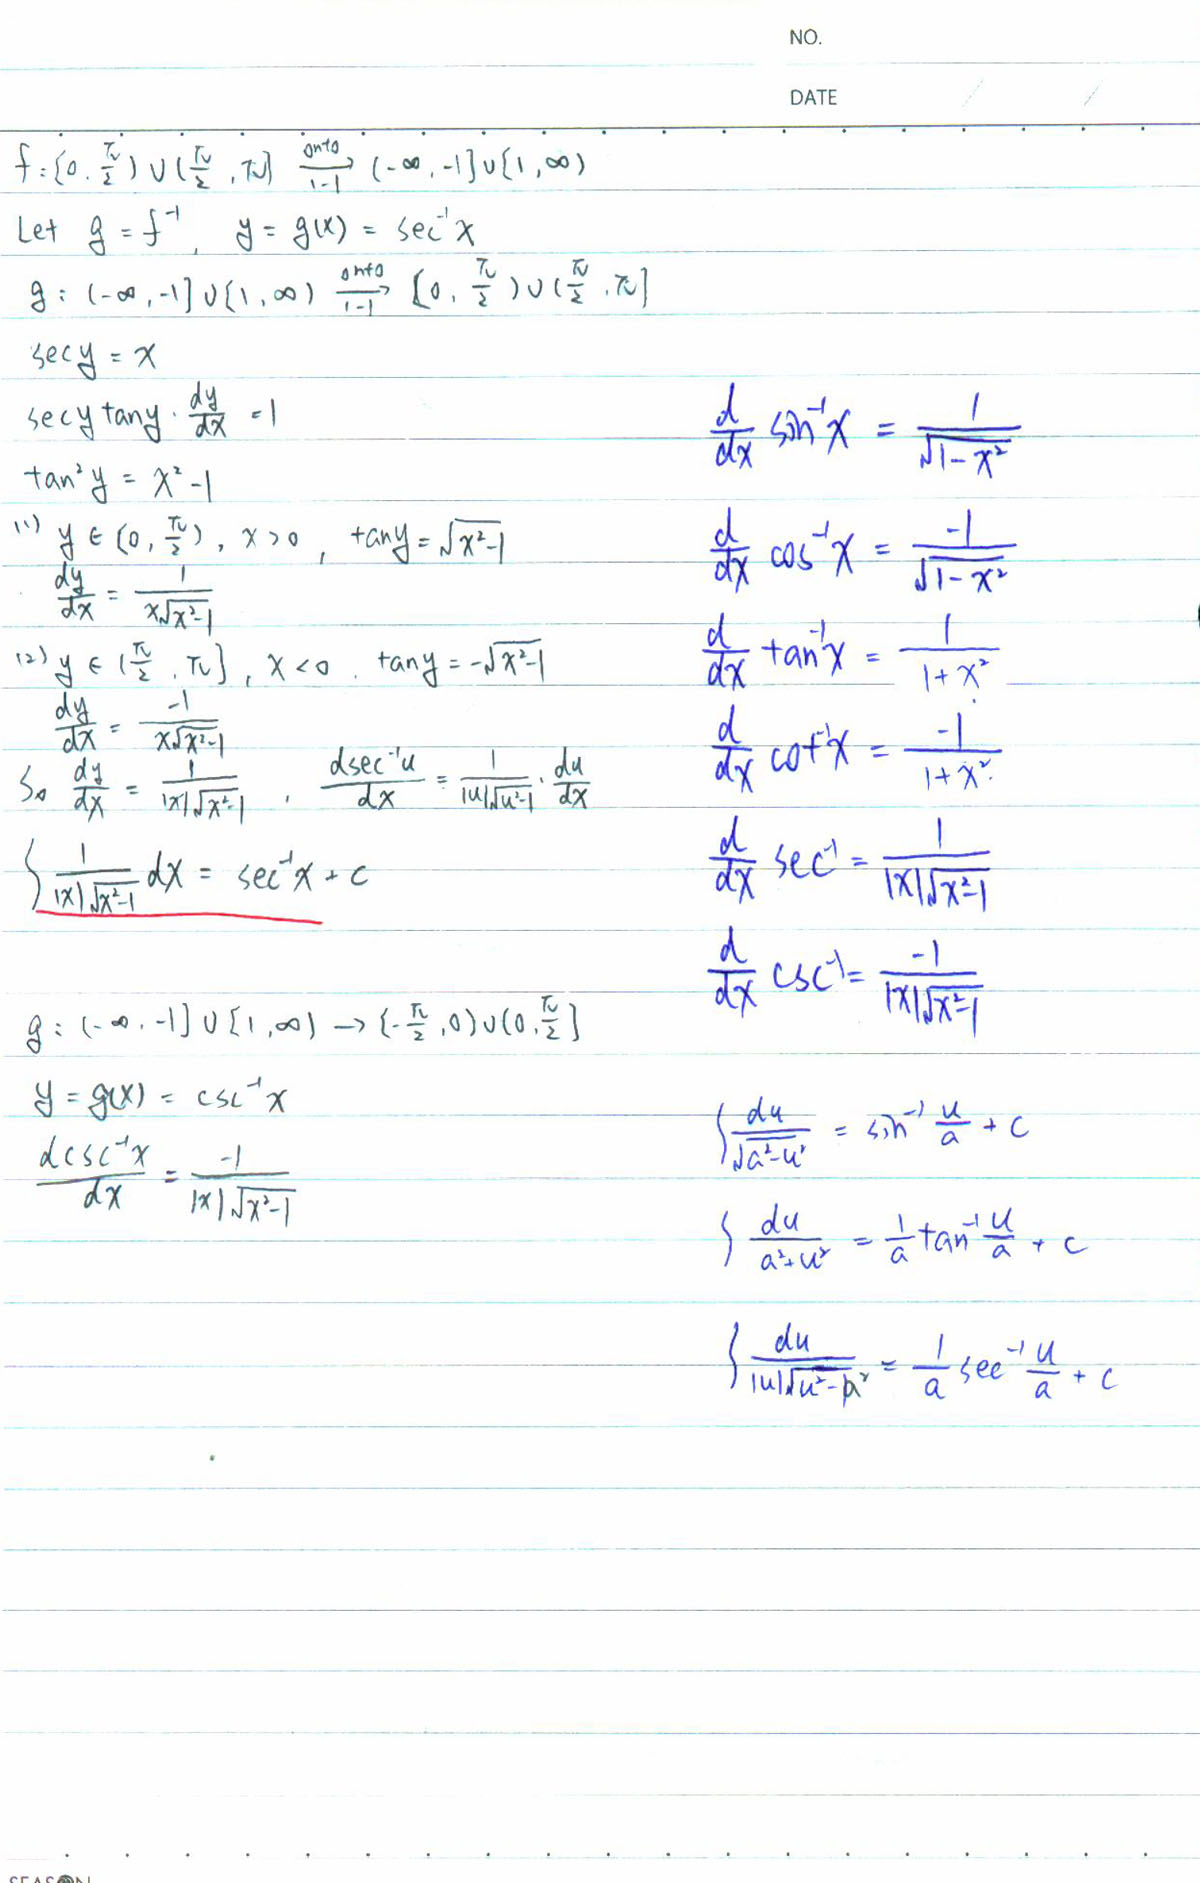 NO.
DATE / /
f: [0, π/2) ∪ (π/2, π] onto→1-1 (-∞, -1] ∪ [1, ∞)
Let g = f⁻¹, y = g(x) = sec⁻¹x
g: (-∞, -1] ∪ [1, ∞) onto→1-1 [0, π/2) ∪ (π/2, π]
sec y = x
sec y tan y · dy/dx = 1
tan²y = x² - 1
(1) y ∈ (0, π/2), x > 0, tan y = √(x²-1)
dy/dx = 1/(x√(x²-1))
(2) y ∈ (π/2, π], x < 0, tan y = -√(x²-1)
dy/dx = -1/(x√(x²-1))
So dy/dx = 1/(|x|√(x²-1)), dsec⁻¹u/dx = 1/(|u|√(u²-1)) · du/dx
∫ 1/(|x|√(x²-1)) dx = sec⁻¹x + c
g: (-∞, -1] ∪ [1, ∞) → [-π/2, 0) ∪ (0, π/2]
y = g(x) = csc⁻¹x
dcsc⁻¹x/dx = -1/(|x|√(x²-1))
d/dx sin⁻¹x = 1/√(1-x²)
d/dx cos⁻¹x = -1/√(1-x²)
d/dx tan⁻¹x = 1/(1+x²)
d/dx cot⁻¹x = -1/(1+x²)
d/dx sec⁻¹ = 1/(|x|√(x²-1))
d/dx csc⁻¹ = -1/(|x|√(x²-1))
∫ du/√(a²-u²) = sin⁻¹ u/a + c
∫ du/(a²+u²) = 1/a tan⁻¹ u/a + c
∫ du/(|u|√(u²-a²)) = 1/a sec⁻¹ u/a + c
SEASON